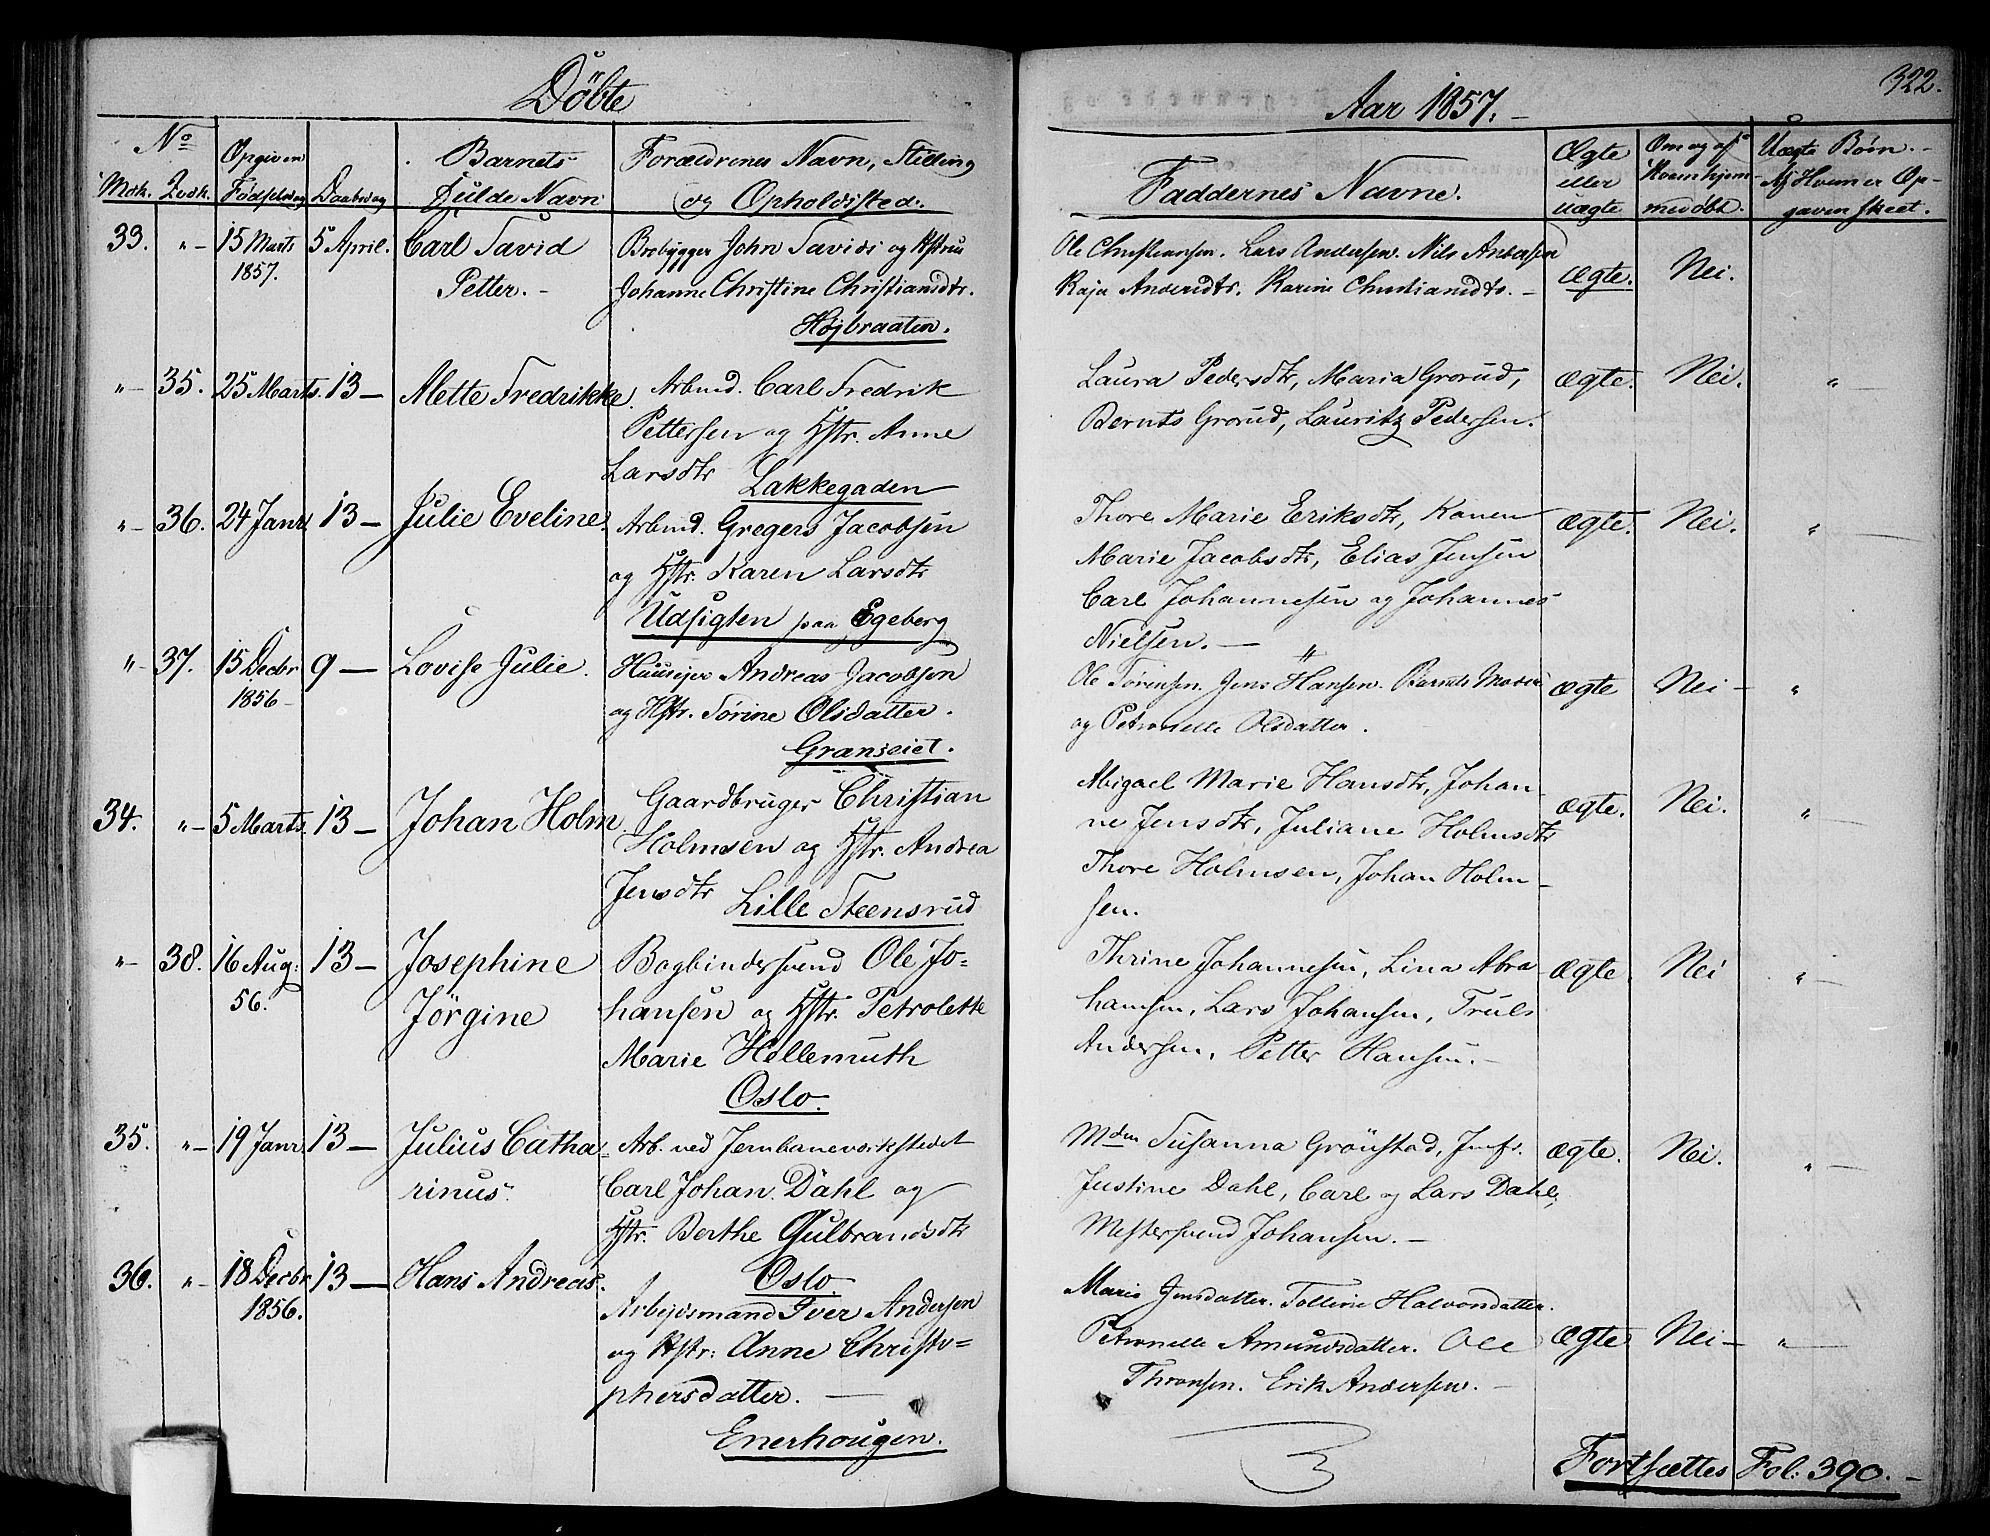 Döbte
Aar 1857. –
322.
No
Mdk. Qvdk.
Opgiven Fødselsdag
Daabsdag
Barnets fulde Navn
Forældrenes Navn, Stilling og Opholdssted.
Faddernes Navne.
Ægte eller uægte
Om og af Hvem hjemmedøbt.
Uægte Børn. – Af Hvem er Opgaven skeet.
33. " 15 Marts 1857. 5 April. Carl David
Petter. –
Brobygger John Davids og Hstru
Johanne Christine Christiansdtr.
Højbraaten.
Ole Christiansen. Lars Andersen. Nils Andersen
Kaja Andersdtr. Karine Christiansdtr. –
Ægte. Nei.
" 35. 25 Marts. 13 – Alette Fredrikke.
Arbmd. Carl Fredrik
Pettersen og Hstr. Anne
Larsdtr Lakkegaden
Laura Pedersdtr, Maria Grorud,
Bernts Grorud, Lauritz Pedersen.
ægte. Nei. "
" 36. 24 Janr 13 – Julie Eveline.
Arbmd. Gregers Jacobsen
og Hstr. Karen Larsdtr
Udsigten paa Egeberg
Thore Marie Eriksdtr, Karen
Marie Jacobsdtr, Elias Jensen
Carl Johannesen og Johannes
Nielsen. –
ægte. Nei. "
" 37. 15 Decbr 1856 – 9 – Lovise Julie.
Huusejer Andreas Jacobsen
og Hstr. Sørine Olsdatter.
Granseiet.
Ole Sørensen. Jens Hansen. Barnets Moder
og Petronelle Olsdatter.
ægte Nei – "
34. " 5 Marts. 13 – Johan Holm.
Gaardbruger Christian
Holmsen og Hstr. Andrea
Jensdtr Lille Steensrud
Abigael Marie Hansdtr, Johan-
ne Jensdtr, Juliane Holmsdtr
Thore Holmsen, Johan Holm-
sen.
ægte. Nei. "
" 38. 16 Aug: 56. 13 – Josephine
Jörgine
Bogbindersvend Ole Jo-
hansen og Hstr. Petrolette
Marie Hellemuth
Oslo.
Thrine Johannesen, Lina Abra
hamsen, Lars Johansen, Truls
Andersen, Petter Hansen. –
ægte. Nei "
35. " 19 Janr 13 – Julius Catha-
rinus.
Arb. ved Jernbaneværkstedet
Carl Johan Dahl og
Hstr. Berthe Gulbrandsdtr
Oslo.
Mdm Susanna Grönstad, Jmfr.
Justine Dahl, Carl og Lars Dahl,
Mestersvend Johansen. –
ægte. Nei. "
36. " 18 Decbr 1856. 13 – Hans Andreas.
Arbejdsmand Iver Andersen
og Hstr: Anne Christo-
phersdatter. –
Enerhougen.
Maria Jensdatter. Halvorsdatter.
Petronelle Amundsdatter. Ole
Thronsen. Erik Andersen. –
ægte Nei – "
Fortsættes Fol: 390. –